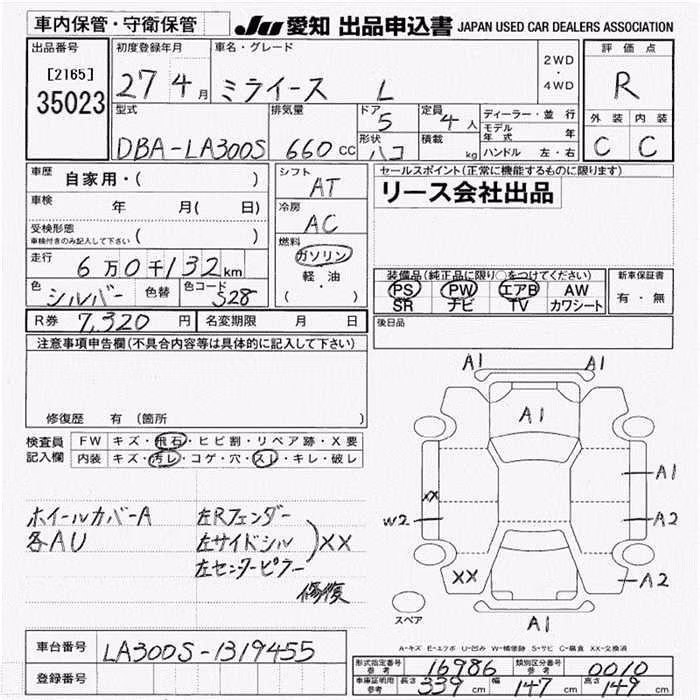 車内保管・守衛保管
JU 愛知 出品申込書 JAPAN USED CAR DEALERS ASSOCIATION
出品番号
[2165]
35023
初度登録年月
27 4月
車名・グレード
ミライース L
2WD
・
4WD
評価点
R
外装 内装
C C
型式
DBA-LA300S
排気量
660cc
ドア
5
形状
ハコ
定員
4人
積載
kg
ディーラー・並行
モデル年式 年
ハンドル 左・右
車歴
自家用・( )
車検
年 月( 日)
受検形態
車検付きのみ記入して下さい ( )
走行
6万0千132km
色
シルバー
色替
色コード
S28
シフト
AT
冷房
AC
燃料
ガソリン
・
軽・油
( )
セールスポイント(正常に機能するものに限ります)
リース会社出品
装備品(純正品に限り○をつけてください)
PS PW エアB AW
SR ナビ TV カワシート
新車保証書
有・無
R券 7,320円 名変期限 月 日
後日品
注意事項申告欄(不具合内容等は具体的に記入して下さい)
修復歴 有 (箇所 )
検査員記入欄
FW キズ・飛石・ヒビ割・リペア跡・X要
内装 キズ・汚レ・コゲ・穴・スレ・キレ・破レ
ホイールカバーA
各AU
左Rフェンダー
左サイドシル
左センターピラー
XX
修復
A1 A1
A1
A1
XX
W2 A2
XX A2
A1
スペア
A-キズ E-エクボ U-凹み W-補修跡 S-サビ C-腐食 XX-交換済
車台番号 LA300S-1319455
登録番号
形式指定番号 参考 16986 類別区分番号 参考 0010
車庫証明用 参考 長さ 339cm 幅 147cm 高さ 149cm